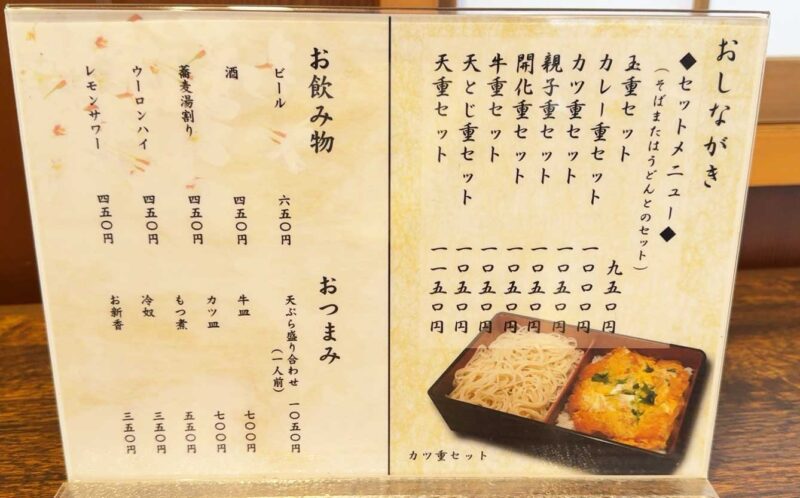 おしながき
◆セットメニュー◆
(そばまたはうどんとのセット)
玉重セット 九五〇円
カレー重セット 一〇〇〇円
カツ重セット 一〇五〇円
親子重セット 一〇五〇円
開化重セット 一〇五〇円
牛重セット 一〇五〇円
天とじ重セット 一〇五〇円
天重セット 一一五〇円
カツ重セット
お飲み物
ビール 六五〇円
酒 四五〇円
蕎麦湯割り 四五〇円
ウーロンハイ 四五〇円
レモンサワー 四五〇円
おつまみ
天ぷら盛り合わせ 一〇五〇円
(一人前)
牛皿 七〇〇円
カツ皿 七〇〇円
もつ煮 五五〇円
冷奴 三五〇円
お新香 三五〇円